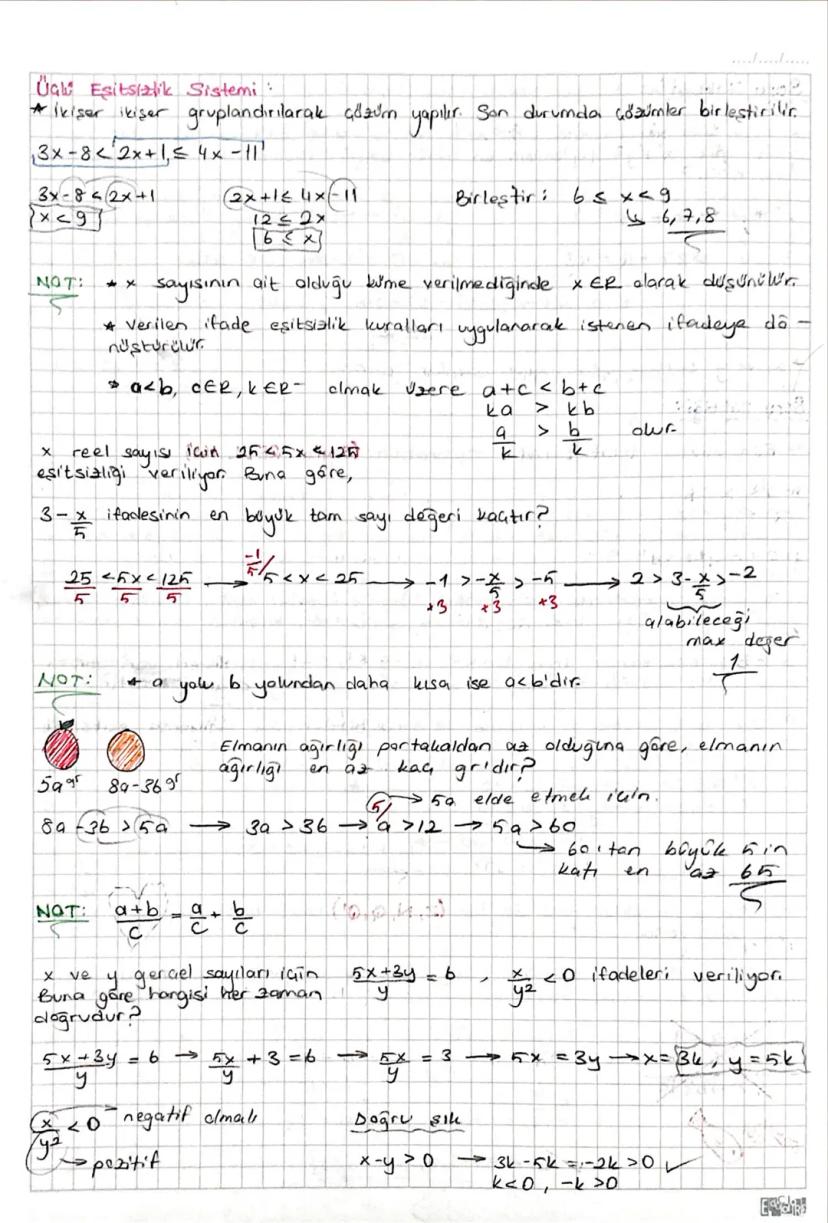 Üçlü Eşitsizlik Sistemi:
* İkişer ikişer gruplandırılarak çözüm yapılır. Son durumda çözümler birleştirilir.
3x-8 < 2x+1 ≤ 4x-11
3x-8 < 2x+1   2x+1 ≤ 4x-11   Birleştir: 6 ≤ x < 9
x < 9   12 ≤ 2x   ↳ 6,7,8
6 ≤ x
NOT: * x sayısının ait olduğu küme verilmediğinde x∈R olarak düşünülür.
* Verilen ifade eşitsizlik kuralları uygulanarak istenen ifadeye dö-
nüştürülür.
* a<b, c∈R, k∈R⁻ olmak üzere a+c < b+c
ka > kb
a/k > b/k olur.
x reel sayısı için 25 < 5x < 125
eşitsizliği veriliyor. Buna göre,
3 - x/5 ifadesinin en büyük tam sayı değeri kaçtır?
25/5 < 5x/5 < 125/5 → -1/5 / 5 < x < 25 → -1 > -x/5 > -5 → 2 > 3 - x/5 > -2
+3 +3 +3
alabileceği
max değer
1
NOT: * a yolu b yolundan daha kısa ise a<b'dir.
Elmanın ağırlığı portakaldan az olduğuna göre, elmanın
ağırlığı en az kaç gr'dır?
5a gr   8a-36 gr
5/ → 5a elde etmek için.
8a-36 > 5a → 3a > 36 → a > 12 → 5a > 60
↳ 60'tan büyük 5'in
katı en az 65
NOT: (a+b)/c = a/c + b/c
x ve y gerçel sayıları için (5x+3y)/y = 6, x/y² < 0 ifadeleri veriliyor.
Buna göre hangisi her zaman
doğrudur?
(5x+3y)/y = 6 → 5x/y + 3 = 6 → 5x/y = 3 → 5x = 3y → x = 3k, y = 5k
x/y² < 0 negatif olmalı   Doğru şık
→ pozitif   x-y > 0 → 3k-5k = -2k > 0 ✓
k<0, -k>0